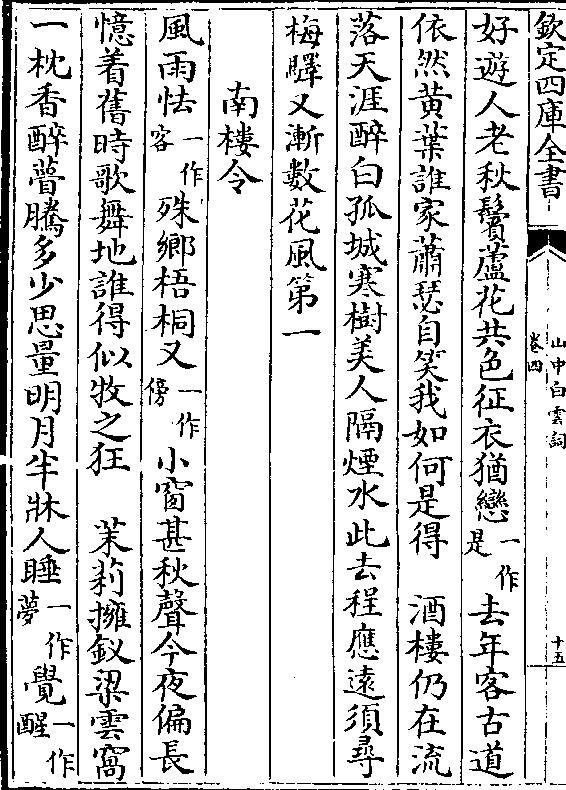 欽定四庫全書
山中白雲詞
卷四
十五
好遊人老秋鬢蘆花共色征衣猶戀一作是去年客古道
依然黄葉誰家蕭瑟自笑我如何是得　酒樓仍在流
落天涯醉白孤城寒樹美人隔煙水此去程應遠須尋
梅驛又漸數花風第一
南樓令
風雨怯一作客殊鄉梧桐又一作傍小窗甚秋聲今夜偏長
憶着舊時歌舞地誰得似牧之狂　茉莉擁釵梁雲窩
一枕香醉瞢騰多少思量明月半牀人睡一作夢覺一作醒